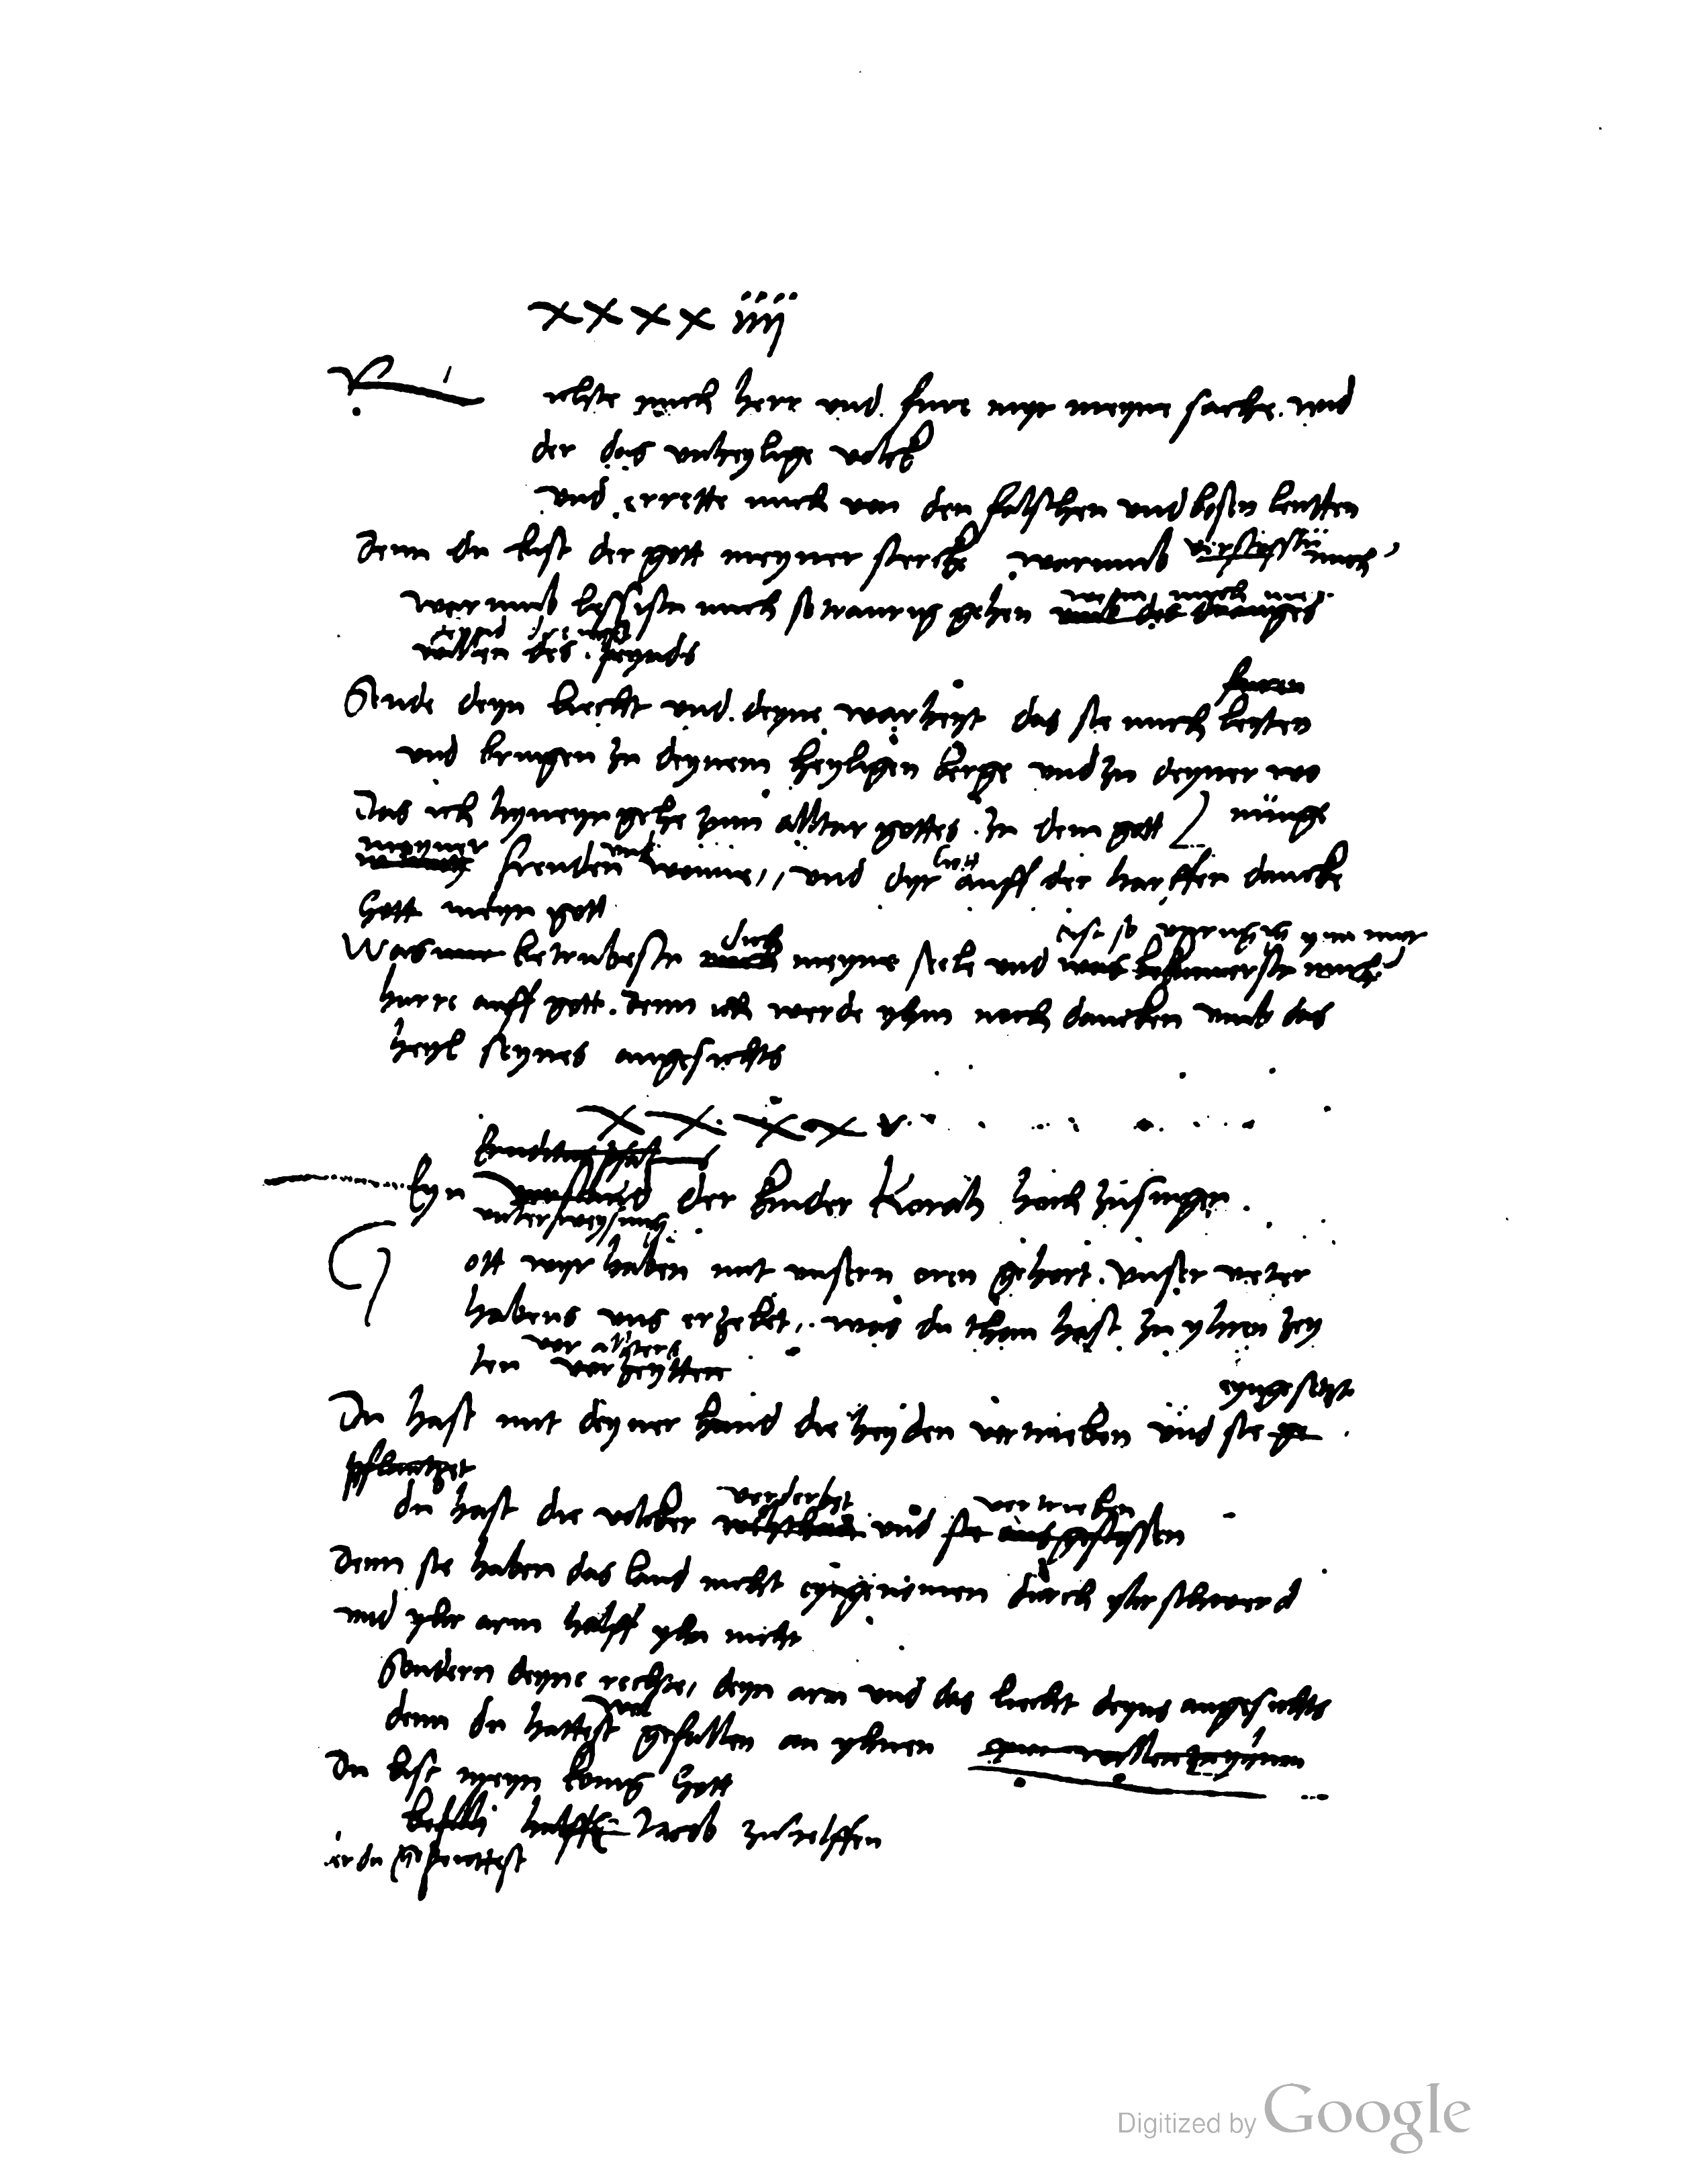 xxxxiiij
R ichte mich herr und fure myr meyne sache wid
der das unheylige volck
und errette mich von den falschen und bosen leutten
Denn du bist der gott meyner sterck warumb verstossistu mich
warumb lessistu mich so traurig gehen umb des dranges
willen des feynds
furen
Sende deyn liecht und deyne warheyt das sie mich leyten
und bringen zu deynem heyligen berge und zu deyner wo
Das ich hyneyn gehe zum alltar gottes zu dem gott nunge
meyner freuden und wonne, und dyr Gott auff der harffen dancke
Gott meyn gott
dich
Was betrubestu mich meyne seele und was bekumerstu mich
harre auff gott. denn ich werde yhm noch dancken umb das
heyl seynes angesichts
xxxxv
Eyn verstand der kinder Korah hoch zusingen
unterweysung
G ott wyr haben mit unsern oren gehort. unser veter
habens uns erzelet, was du than hast zu yhren zey
vor allters
ten vorzeytten
eyngesetzt
Du hast mit deyner hand die heyden vertrieben und sie ge
pflantzet
verderbet vertrieben
du hast die volcker und sie ausgestossen
Denn sie haben das land nicht eyngenomen durch yhr schwerd
und yhr arm halff yhn nicht
Sondern deyne rechte, deyn arm und das liecht deyns angesichts
wol
denn du hattest gefallen an yhnen
Du bist meyn konig Gott
Jacob zu helffen